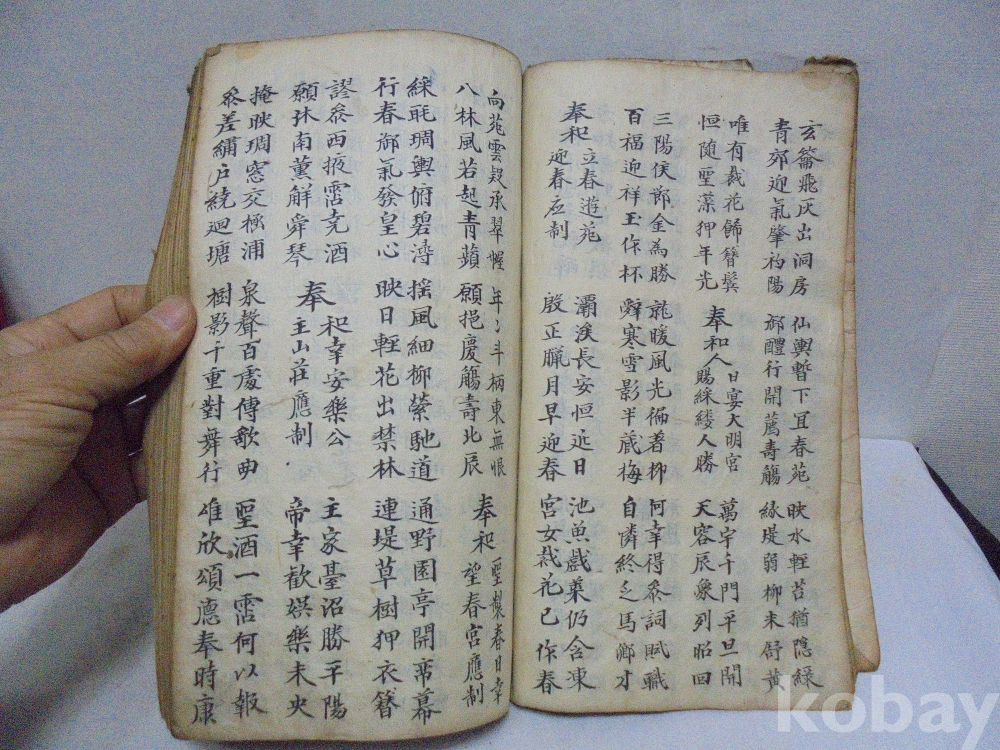 玄籥飛灰出洞房
青郊迎氣肇初陽
仙輿暫下宜春苑
御醴行開薦壽觴
映水輕苔猶隱綠
緣堤弱柳未舒黃
唯有裁花飾簪鬢
恒隨聖藻狎年光
奉和人日宴大明宮
賜綵縷人勝
萬宇千門平旦開
天容辰象列昭回
三陽候節金為勝
百福迎祥玉作杯
就暖風光偏着柳
辭寒雪影半藏梅
何幸得參詞賦職
自憐終乏馬卿才
奉和立春遊苑
迎春应制
灞滻長安恒近日
殷正臘月早迎春
池魚戲藻仍含凍
宮女裁花已作春
向苑雲疑承翠幄
八林風若起青蘋
年〻斗柄東無恨
願挹慶觴壽北辰
奉和聖製春日幸
望春宮應制
綵眊琱輿俯碧潯
行春御氣發皇心
搖風細柳縈馳道
映日輕花出禁林
通野園亭開帟幕
連堤草樹狎衣簪
謬參西掖霑堯酒
願沐南薰解舜琴
奉和幸安樂公
主山莊應制
主家臺沼勝平陽
帝幸歡娛樂未央
掩映琱窓交極浦
參差繡戶繞迴塘
泉聲百處傳歌曲
樹影千重對舞行
聖酒一霑何以報
唯欣頌德奉時康
kobay